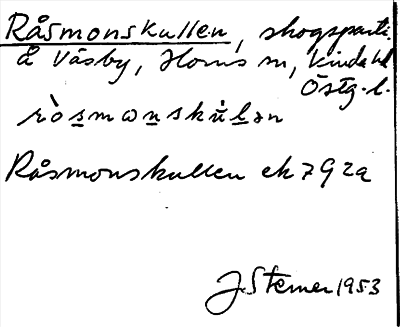 Råsmonskullen, skogsparti
å Väsby, Horns sn, Kinda hd
Östg. l.
Råsmonskullen ek 7 9 2a
J Sterner 1953